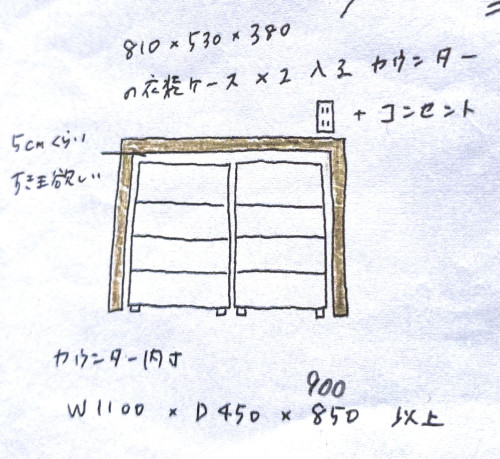 810×530×380
の衣装ケース×2 入る カウンター
+ コンセント
5cmくらい
すきま欲しい
カウンター内寸
900
W1100 × D450 × 850 以上